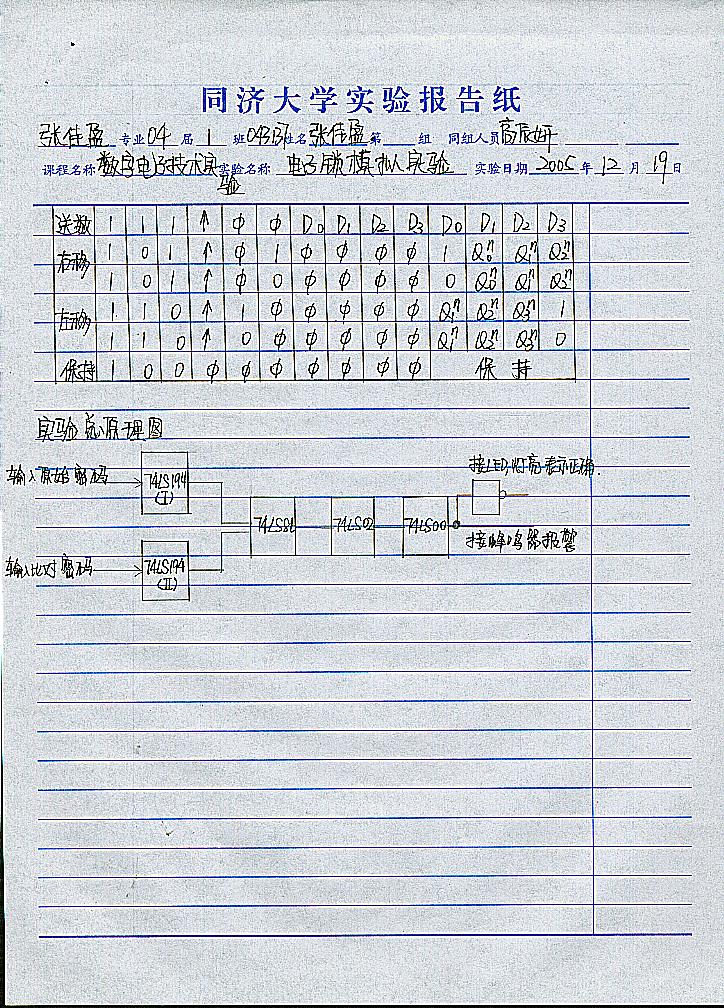 同济大学实验报告纸
张佳盈 专业 04 届 1 班 04313 姓名 张佳盈 第 组 同组人员 高辰妍
课程名称 数字电子技术实验 实验名称 电子锁模拟实验 实验日期 2005 年 12 月 19 日
送数 1 1 1 ↑ ϕ ϕ D0 D1 D2 D3 D0 D1 D2 D3
右移 1 0 1 ↑ ϕ 1 ϕ ϕ ϕ ϕ 1 Q0ⁿ Q1ⁿ Q2ⁿ
1 0 1 ↑ ϕ 0 ϕ ϕ ϕ ϕ 0 Q0ⁿ Q1ⁿ Q2ⁿ
左移 1 1 0 ↑ 1 ϕ ϕ ϕ ϕ ϕ Q1ⁿ Q2ⁿ Q3ⁿ 1
1 1 0 ↑ 0 ϕ ϕ ϕ ϕ ϕ Q1ⁿ Q2ⁿ Q3ⁿ 0
保持 1 0 0 ϕ ϕ ϕ ϕ ϕ ϕ ϕ 保持
实验总原理图
输入原始密码
74LS194
(I)
接LED,灯亮表示正确.
74LS86
74LS02
74LS00
接蜂鸣器报警
输入比对密码
74LS194
(II)